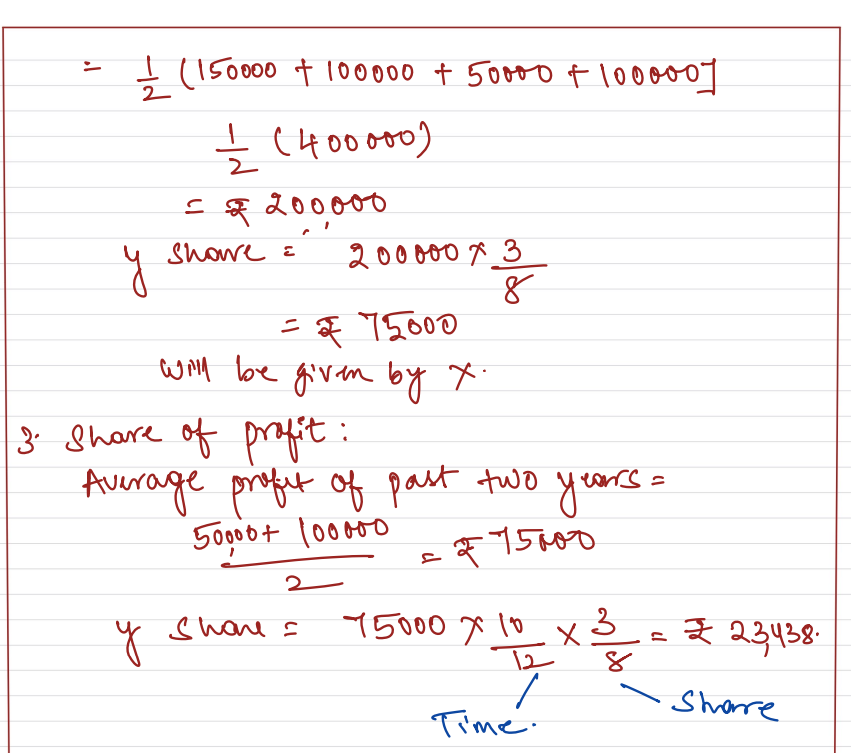 = 1/2 (150000 + 100000 + 50000 + 100000]
1/2 (400000)
= ₹ 200000
y share = 200000 × 3/8
= ₹ 75000
will be given by x.
3. Share of profit:
Average profit of past two years =
50000 + 100000 / 2 = ₹ 75000
y share = 75000 × 10/12 × 3/8 = ₹ 23,438.
Time. Share